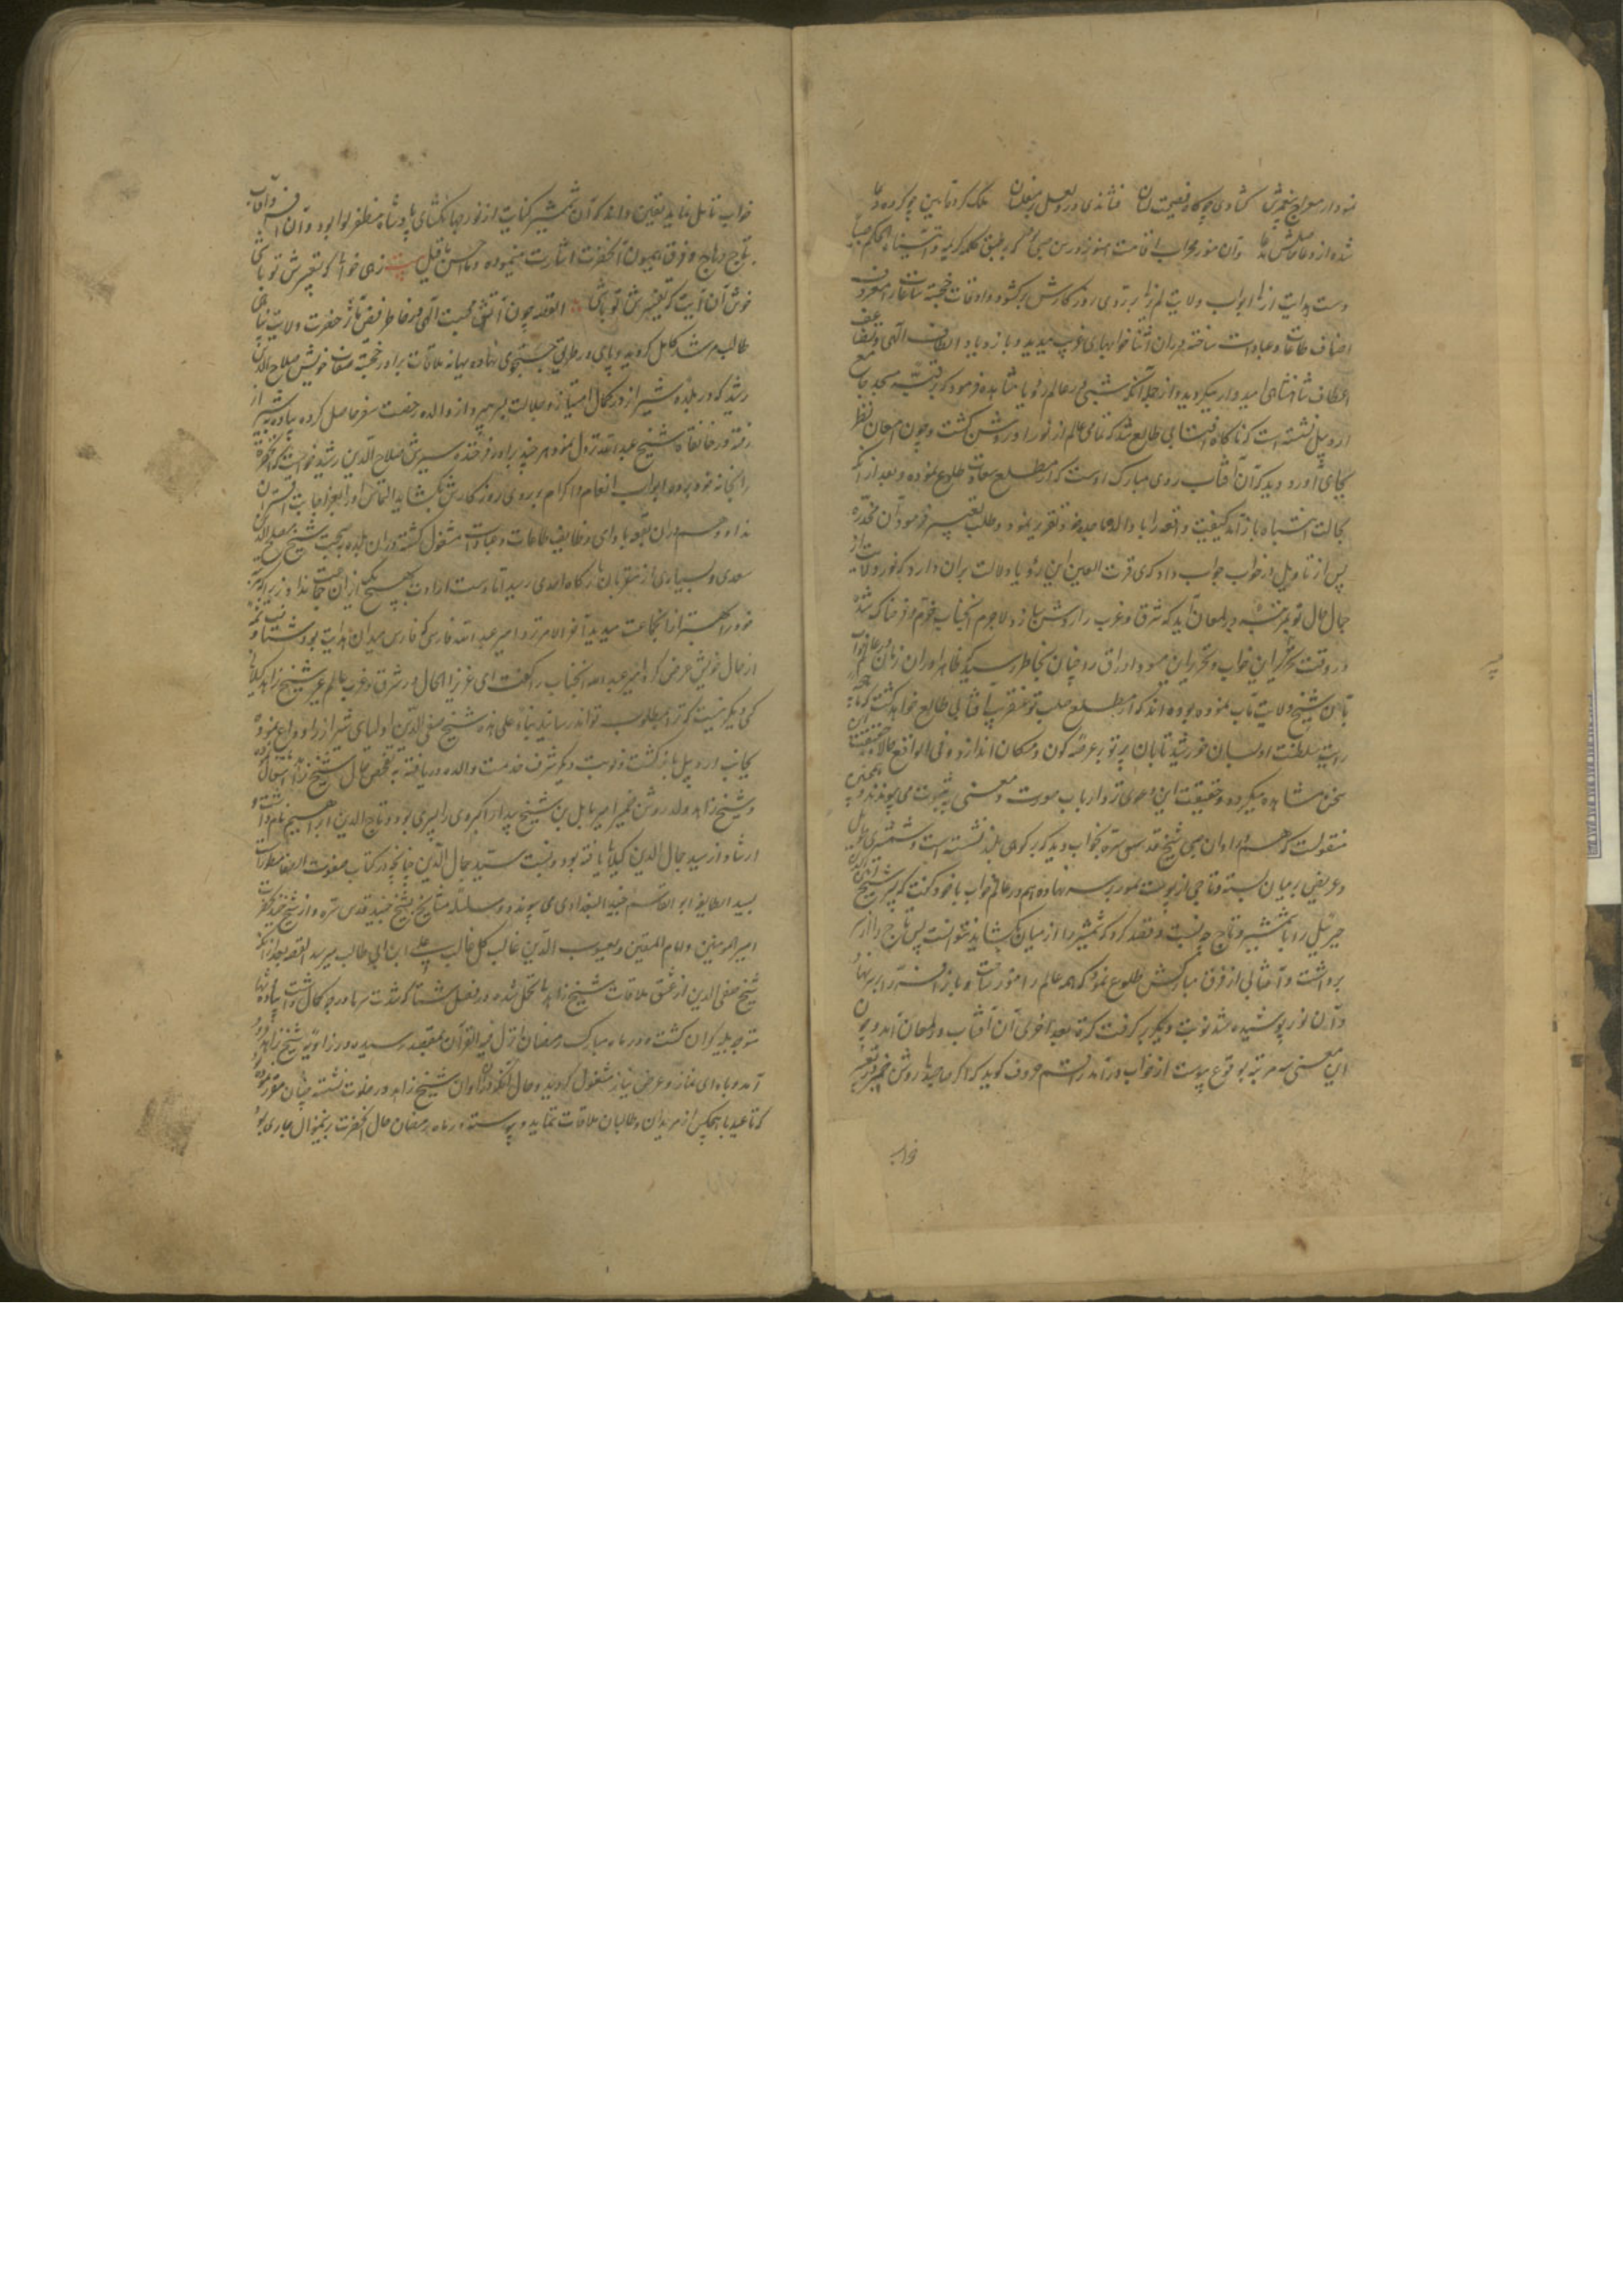 شده از دعا حاصلش مدعا و آن منور محراب اقامت هنوز در سن صبی که بر طبق کلمه کریمه و آتیناه الحکم صبیا
دست هدایت ازل ابواب ولایت لم یزل بر روی روزگارش برکشود و اوقات خجسته ساعات را مصروف
اصناف طاعات و عبادات ساخته در آن اثنا خوابهای غریب میدید و باز دیاد الطاف الهی و تضاعف
اعطاف شاهنشاهی امیدوار میکردید و از جمله آنکه شبی در عالم رویا مشاهده فرمود که بر قبه مسجد جامع
اردبیل نشسته است که ناگاه آفتابی طالع شد که تمامی عالم از نور او روشن گشت و چون امعان نظر
بجای آورد دید که آن آفتاب روی مبارک اوست که از مطلع سعادت طلوع نموده و بعد از آنکه
بحالت انتباه باز آمد کیفیت واقعه را با والده ماجده خود تقریر نمود و طلب تعبیر فرمود آن مخدره
پس از تاویل در خواب جواب داد که ای قرت العین این رؤیا دلالت بر آن دارد که نور ولایت از
جمال حال تو بمرتبه در لمعان آید که شرق و غرب را روشن سازد لاجرم آنجناب خرم و فرحناک شد
و در وقت تحریر این خواب و تحریر این مسوده اوراق چنان بخاطر رسید که ظاهرا در آن زمان در عالم خواب
بآن شیخ ولایت مآب نموده بوده اند که از مطلع صلب تو عنقریب آفتابی طالع خواهد گشت که ماهچه
رایت سلطنت او بسان خورشید تابان پرتو بر عرصه کون و مکان اندازد و فی الواقع حالا حقیقت آن
سخن مشاهده میگردد و حقیقت این دعوی نزد ارباب صورت و معنی به ثبوت می پیوندد و همچنین
منقولست که هم در اوان صبی شیخ قدس سره بخواب دید که بر کوهی بلند نشسته است و شمشیری طویل
و عریض بر میان بسته و تاجی از پوست سمور بر سر نهاده هم در عالم خواب با خود گفت که پسر شیخ امین الدین
جبرئیل را با شمشیر و تاج چه نسبت و قصد کرد که شمشیر را از میان بکشاید نتوانست پس تاج را از سر
برداشت و آفتابی از فرق مبارکش طلوع نمود که همه عالم را منور ساخت و باز افسر را بر سر نهاد
و آن نور پوشیده شد نوبت دیگر برگرفت کرة بعد اخری آن آفتاب در لمعان آمد و چون
این معنی سه مرتبه بوقوع پیوست از خواب درآمد راقم حروف گوید که اگر صاحبدلی روشن ضمیر در تعبیر
خواب
خواب تامل نماید یقین داند که آن شمشیر کنایت از نور جهانگشای پادشاه مظفر لوا بود و آن افسر و آفتاب
تاج وهاج و فرق همیون آنحضرت اشارت مینموده و ما احسن ما قیل بیت زهی خوابی که تعبیرش تو باشی
خوش آن آیت که تفسیرش تو باشی القصه چون آتش محبت الهی در خاطر فیض مآثر حضرت ولایت پناهی
طالب مرشد کامل گردید و پای در طریق جستجوی نهاده ببهانه ملاقات برادر خجسته صفات خویش صلاح الدین
رشید که در بلده شیراز در کمال امتیاز و جلالت بسر میبرد از والده رخصت سفر حاصل کرده پیاده بشیراز
رفته در خانقاه شیخ عبدالله نزول نمود هر چند برادر فرخنده سیرش صلاح الدین رشید خواست که آنحضرت
را بخانه خود برده ابواب انعام و اکرام بر روی روزگارش بکشاید التماس او را بعز اجابت اقتران
نداد و هم در آن بقعه بادای وظایف طاعات و عبادات مشغول گشته در آن بلده بصحبت شیخ مصلح الدین
سعدی و بسیاری از مقربان بارگاه احدی رسید اما دست ارادت بهیچ یک از آن جماعت نداد زیرا که مرتبه
خود را بهتر از آنجماعت میدید آخر الامر نزد امیر عبدالله فارسی که فارس میدان هدایت بود شتافت و شمه
از حال خویش عرض کرد امیر عبدالله آنجناب را گفت ای عزیز الحال در شرق و غرب عالم غیر شیخ زاهد گیلانی
کس دیگر نیست که ترا بمطلوب تواند رسانید بناء علی هذا شیخ صفی الدین اولیای شیراز را وداع نموده
بجانب اردبیل باز گشت و نوبت دیگر شرف خدمت والده دریافته به تفحص حال شیخ زاهد اشتغال
و شیخ زاهد ولد روشن ضمیر امیر بابل بن شیخ بیدار اکبر وی را پسری بود و تاج الدین ابراهیم نام داشت و
ارشاد از سید جمال الدین گیلانی یافته بود و نسبت سید جمال الدین چنانچه در کتاب صفوت الصفا مسطور است
بسید الطایفه ابو القاسم جنید البغدادی می پیوندد و سلسله مشایخ شیخ جنید قدس سره و از شیخ جنید بحضرت
امیر المومنین و امام المتقین و یعسوب الدین غالب کل غالب علی ابن ابی طالب میرسد القصه بعد از آنکه
شیخ صفی الدین از عشق ملاقات شیخ زاهد بی تحمل شده در فصل شتا که شدت سرما درجه کمال داشت پیاده و تنها
متوجه گیلان گشت و در ماه مبارک رمضان انزل فیه القرآن بمقصد رسیده در زاویه شیخ زاهد فرود
آمد و بادای نماز و عرض نیاز مشغول گردید و حال آنکه در آن اوان شیخ زاهد در خلوت نشسته چنان مقرر بود
که تا عید با هیچکس از مریدان و طالبان ملاقات ننماید و پیوسته در ماه رمضان حال آنحضرت برین منوال جاری بود